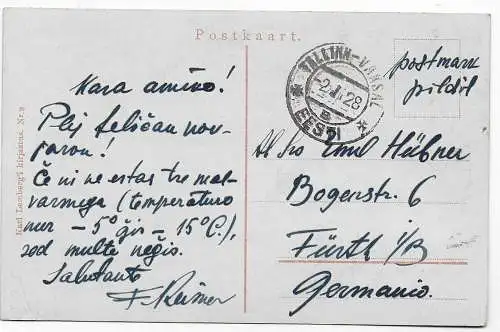 Postkaart.
TALLINN-VAKSAL
-2.1.28
EESTI
postmark
pildil
Kara amiko!
Plej feliĉan nov-
jaron!
Ĉe ni ne estas tre mal-
varmega (temperaturo
nur -5° ĝis -15°C.),
sed multe neĝis.
Salutante
F. Reimer
Al Sro Emil Hübner
Bogenstr. 6
Fürth i/B
Germanio.
Karl Lemberg'i kirjastus. Nr. 9